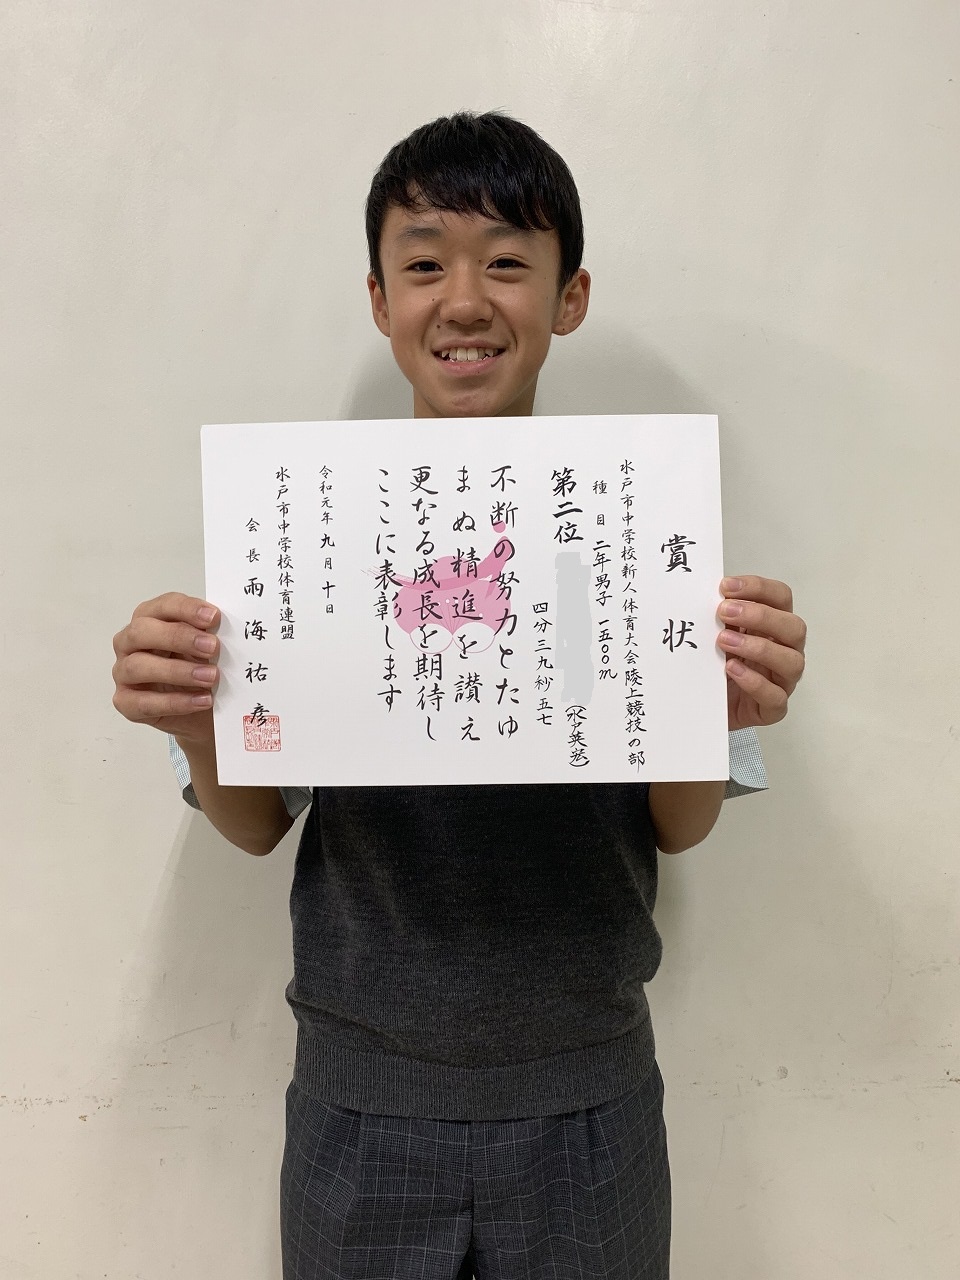 賞状
水戸市中学校新人体育大会陸上競技の部
種目 二年男子 一五〇〇m
第二位
(水戸英宏)
四分三九秒五七
不断の努力とたゆ
まぬ精進を讃え
更なる成長を期待し
ここに表彰します
令和元年九月十日
水戸市中学校体育連盟
会長 雨海祐彦